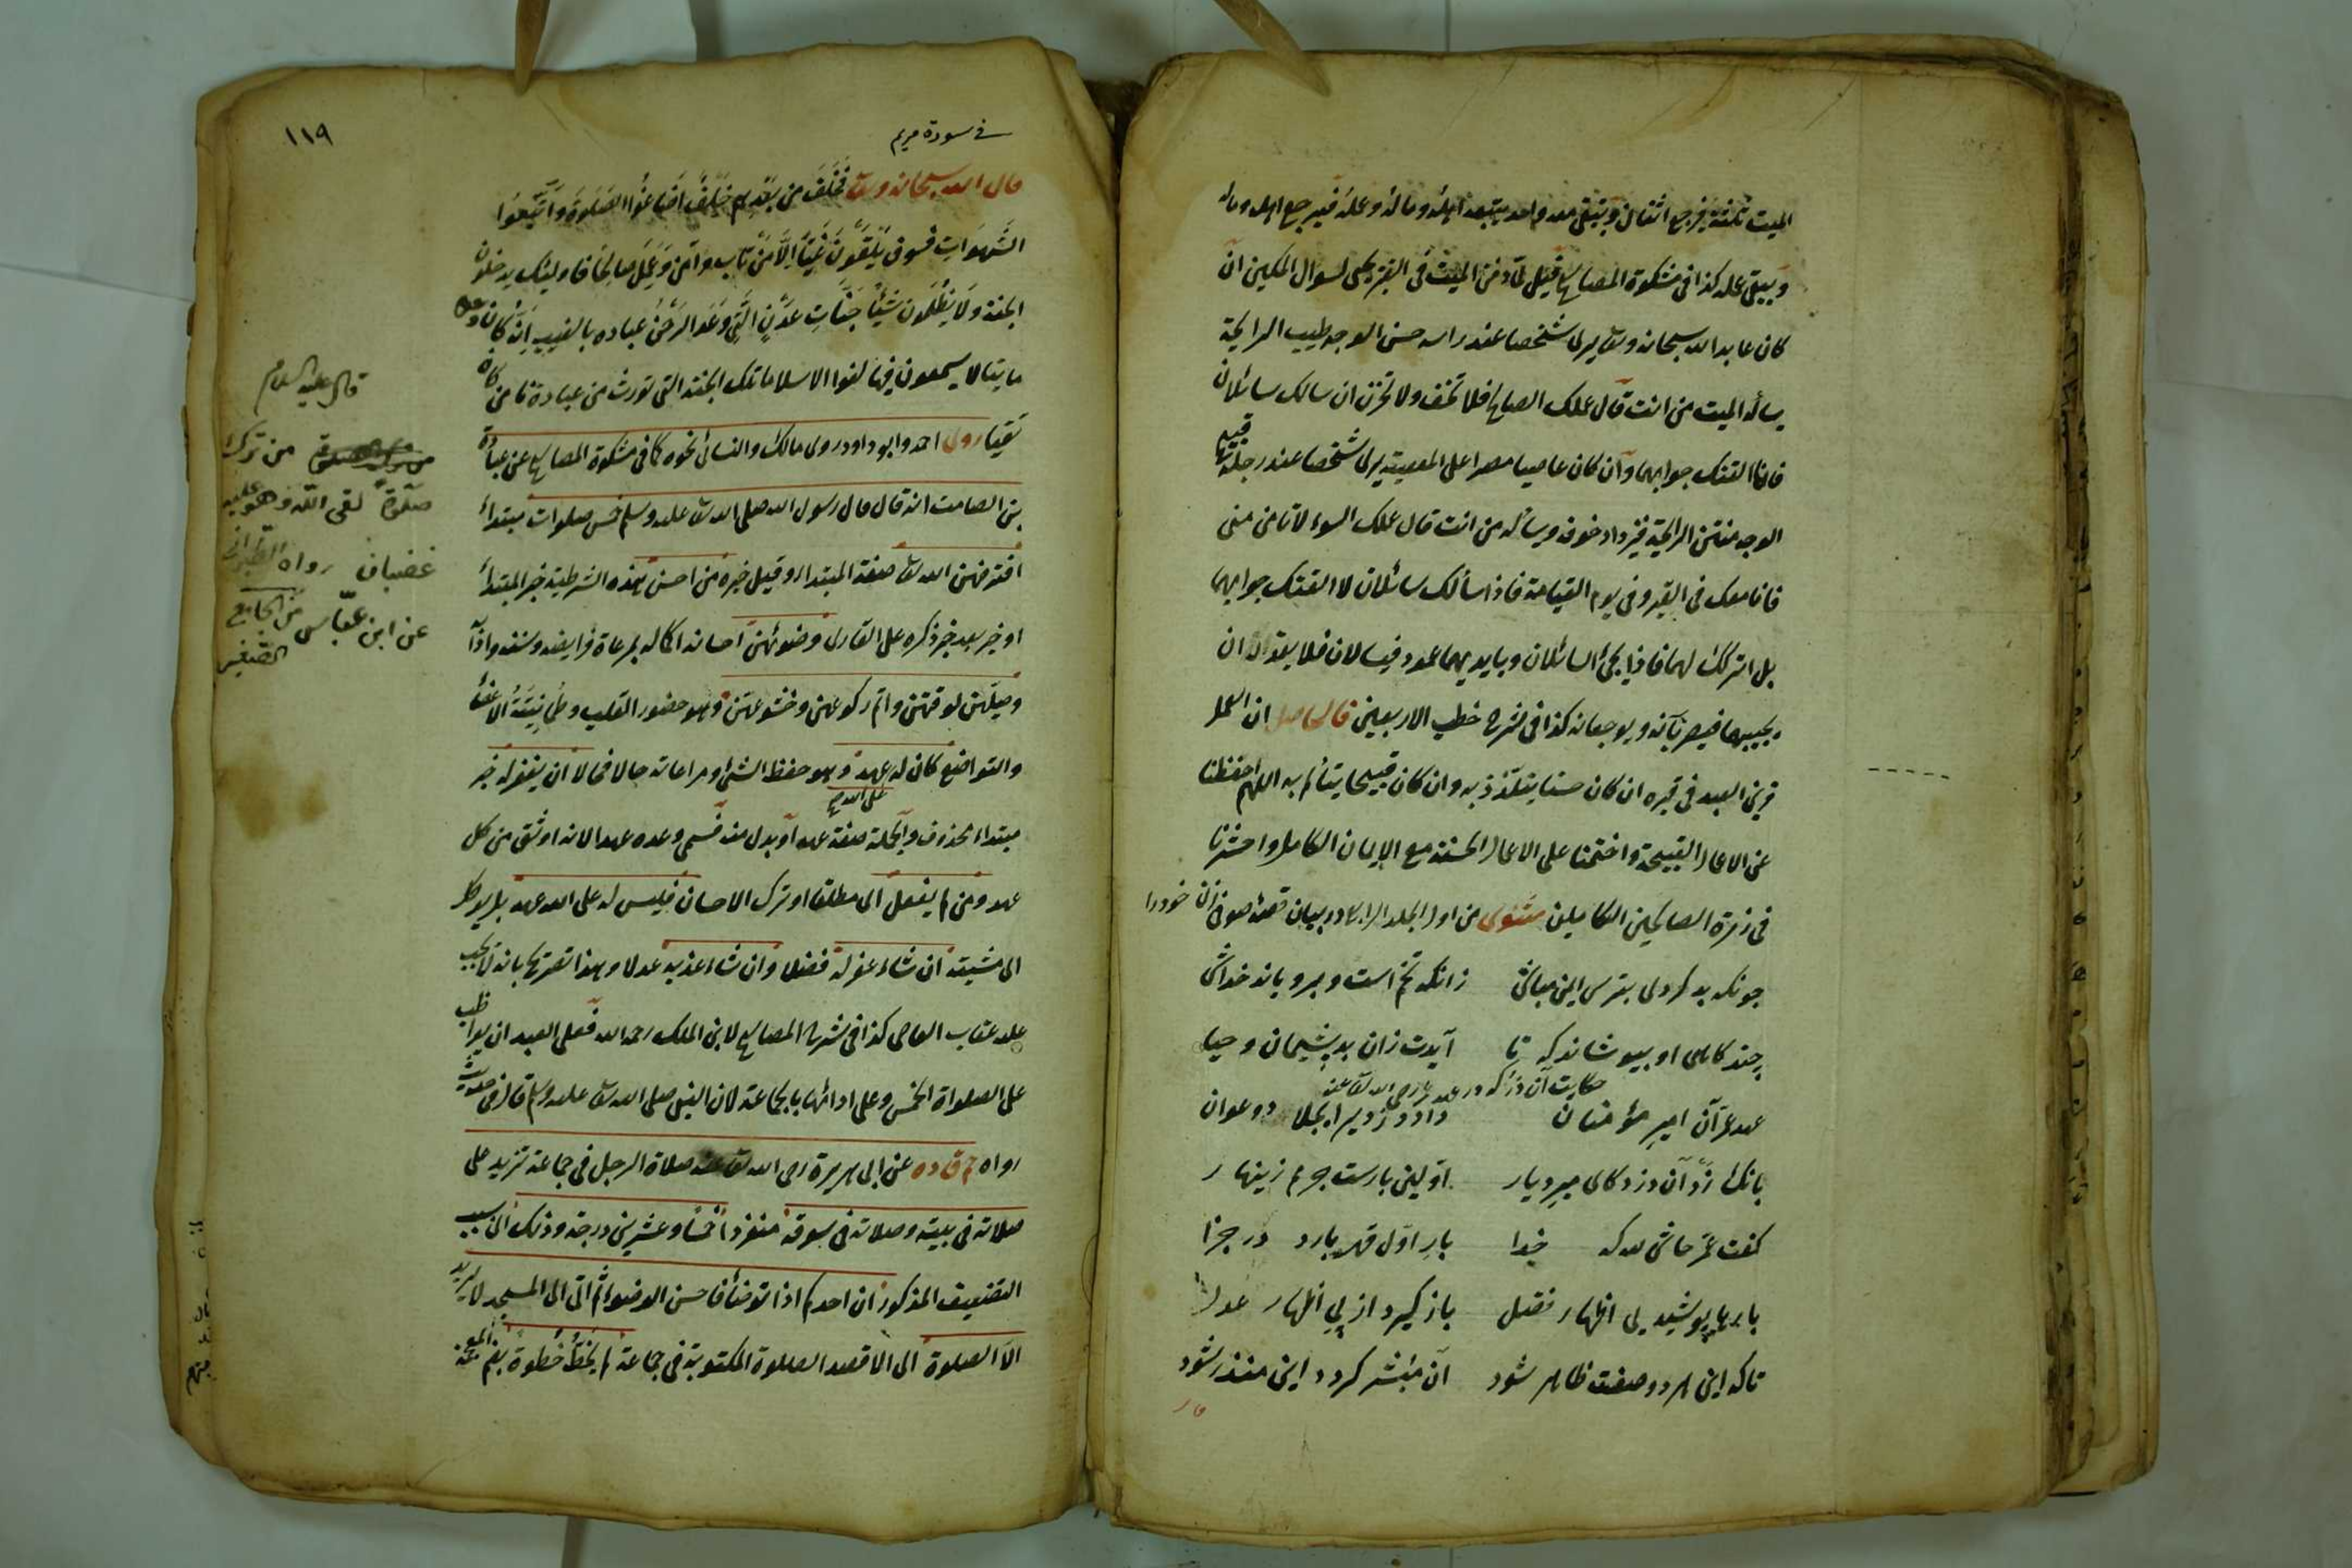 الميت ثلثة فيرجع اثنان ويبقى معه واحد يتبعه اهله وماله وعمله فيرجع اهله وماله
ويبقى عمله كذا فى مشكوة المصابيح قيل لما دفن الميت فى القبر يجئ لسوال الملكين ان
كان عابدا لله سبحانه وتعا يرى شخصا عند راسه حسن الوجه طيب الرايحة
يسأله الميت من انت قال عملك الصالح فلا تخف ولا تحزن ان سالك سائلان
فانا القنك جوابهما وان كان عاصيا مصرا على المعصية يرى شخصا عند رجله قبيح
الوجه منتن الرايحة فيزداد خوفه ويسأله من انت قال عملك السوء لا تأمن منى
فانا معك فى القبر وفى يوم القيامة فاذا سألك سائلان لا القنك جوابهما
بل اتركك لهما فاذا يجئ السائلان وبايديهما عمود فيسالان فلا يقدر ان
يجيبهما فيضربانه ويوجعانه كذا فى شرح خطب الاربعين فالحاصل ان العمل
قرين العبد فى قبره ان كان حسنا يتلذذ به وان كان قبيحا يتألم به اللهم احفظنا
عن الاعمال القبيحة واختمنا على الاعمال الحسنة مع الايمان الكامل واحشرنا
فى زمرة الصالحين الكاملين مثنوى من اول الجلد الرابع در بيان قصه صوفى زن خودرا
چونكه بد كردى بترس ايمن مباش زانكه تخم است وبروياند خداش
چند كاهى او بپوشاند كه تا آيدت زان بد پشيمان وحيا
حكايت آن دزد كه در عهد عمر رضى الله تعا عنه
عهد عمر آن امير مؤمنان داد دزديرا بجلاد وعوان
بانك زد آن دزد كاى مير ديار اولين بارست جرمم زينهار
كفت عمر حاش لله كه خدا بار اول قهر بارد در جزا
بارها پوشد پى اظهار فضل باز كيرد از پى اظهار عدل
تاكه اين هر دو صفت ظاهر شود آن مبشر كردد اين منذر شود
قال
١١٩
فى سورة مريم
قال الله سبحانه وتعا فخلف من بعدهم خلف اضاعوا الصلوة واتبعوا
الشهوات فسوف يلقون غيا الا من تاب وآمن وعمل صالحا فاولئك يدخلون
الجنة ولا يظلمون شيئا جنات عدن التى وعد الرحمن عباده بالغيب انه كان وعده
مأتيا لا يسمعون فيها لغوا الا سلاما تلك الجنة التى نورث من عبادنا من كان
تقيا روى احمد وابو داود روى مالك والنسائى نحوه كما فى مشكوة المصابيح عن عبادة
بن الصامت انه قال قال رسول الله صلى الله تعا عليه وسلم خمس صلوات مبتدأ
افترضهن الله تعا صفة المبتدا وقيل خبره من احسن هذه الشرطية خبر المبتدأ
او خبر بعد خبر ذكره على القارى وضوئهن احسانه اكماله بمرعاة فرايضه وسننه وادآ
وصيلهن لوقتهن واتم ركوعهن وخشوعهن وهو حضور القلب وطمانينة الاعضا
والتواضع كان له عهد وهو حفظ الشئ ومراعاته حالا فحالا ان يغفر له خبر
على الله
مبتداء محذوف والجملة صفة عهد او بدل منه فسمى وعده عهدا لانه اوثق من كل
عهد ومن لم يفعل اى مطلقا او ترك الاحسان فليس له على الله عهد بل يوكل
الى مشيته ان شاء غفر له فضلا وان شاء عذبه عدلا وهذا تصريح بانه لا يجب
عليه عقاب العاصى كذا فى شرح المصابيح لابن الملك رحمه الله فعلى العبد ان يواظب
على الصلواة الخمس وعلى ادائها بالجماعة لان النبى صلى الله تعا عليه وسلم قال فى حديث
رواه حم ق د ه عن ابى هريرة رضى الله تعا عنه صلاة الرجل فى جماعة تزيد على
صلاته فى بيته وصلاته فى سوقه منفردا خمسا وعشرين درجة وذلك اى سبب
التضعيف المذكور ان احدكم اذا توضأ فاحسن الوضوء ثم اتى الى المسجد لا يريد
الا الصلوة اى الا قصد الصلوة المكتوبة فى جماعة لم يخط خطوة بفتح المعجمة
قال عليه السلام
من ترك
صلوة لقى الله وهو عليه
غضبان رواه الطبرانى
عن ابن عباس من الجامع
الصغير